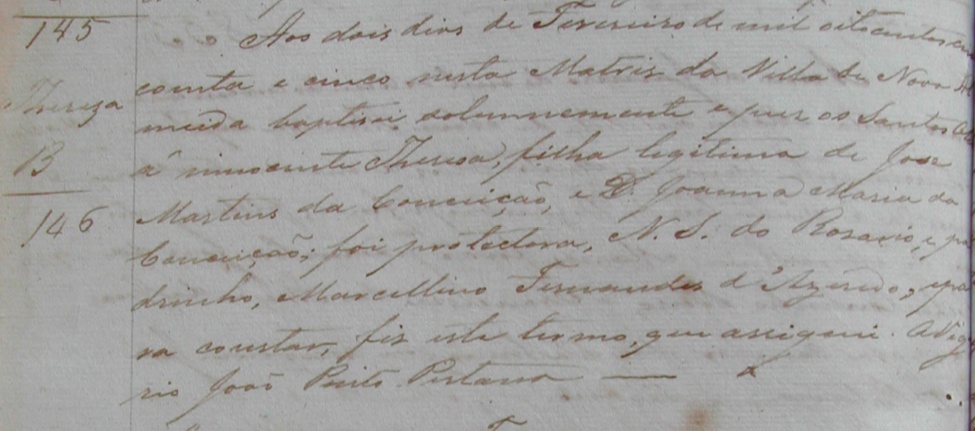 145
Aos dois dias de Fevereiro de mil oitocentos cin
coenta e cinco nesta Matris da Villa de Nova Al
Thereza
meida baptisei solemnemente e puz os Santos
B
a innocente Theresa, filha legitima de Jose
146
Martins da Conceição, e D. Joanna Maria da
Conceição; foi protectora, N. S. do Rosario, e pa
drinho, Marcellino Fernandes d'Azeredo, e pa
ra constar, fiz este termo, que assignei. O Viga
rio João Pinto Pestana